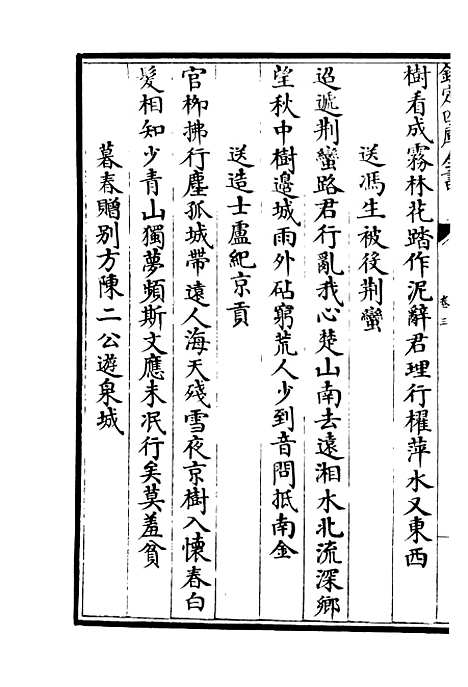 欽定四庫全書
卷三
樹看成霧林花踏作泥辭君理行櫂萍水又東西
送馮生被後荆蠻
迢遞荆蠻路君行亂我心楚山南去遠湘水北流深鄉
望秋中樹邊城雨外砧窮荒人少到音問抵南金
送造士盧紀京貢
官柳拂行塵孤城帶遠人海天殘雪夜京樹入懐春白
髮相知少青山獨夢頻斯文應未泯行矣莫羞貧
暮春贈别方陳二公遊泉城